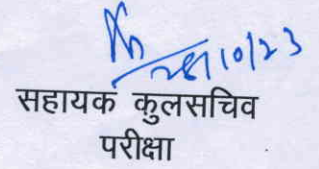 28/10/23
सहायक कुलसचिव
परीक्षा